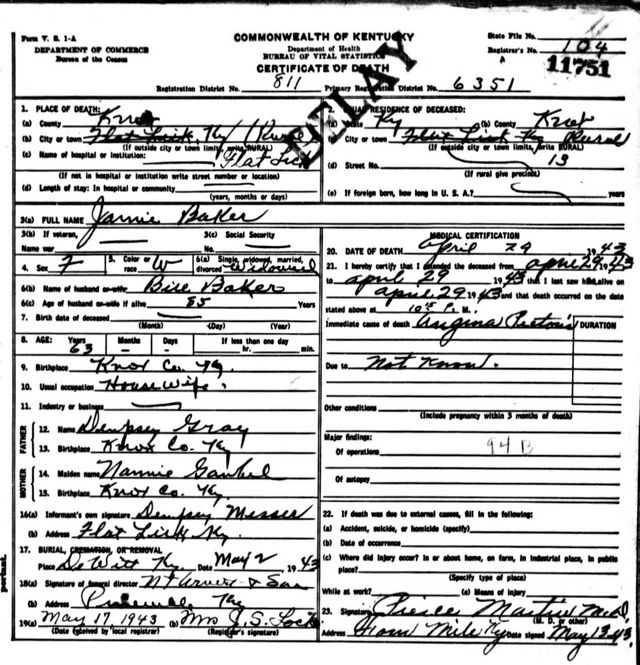 Form V. S. 1-A
DEPARTMENT OF COMMERCE
Bureau of the Census
COMMONWEALTH OF KENTUCKY
Department of Health
BUREAU OF VITAL STATISTICS
CERTIFICATE OF DEATH
State File No.
Registrar's No. 104
11751
Registration District No. 811 Primary Registration District No. 6351
1. PLACE OF DEATH:
(a) County Knox
(b) City or town Flat Lick, Ky (Rural)
(If outside city or town limits, write RURAL)
(c) Name of hospital or institution: Flat Lick
(If not in hospital or institution write street number or location)
(d) Length of stay: In hospital or community
(years, months or days)
2. USUAL RESIDENCE OF DECEASED:
(a) State Ky (b) County Knox
(c) City or town Flat Lick Ky Rural
(If outside city or town limits, write RURAL)
(d) Street No. 13
(If rural give precinct)
(e) If foreign born, how long in U. S. A.?
3(a) FULL NAME Jamie Baker
3(b) If veteran, Name war
3(c) Social Security No.
4. Sex F
5. Color or race W
6(a) Single, widowed, married, divorced Widowed
6(b) Name of husband or wife Bill Baker
6(c) Age of husband or wife if alive 85 Years
7. Birth date of deceased
(Month) (Day) (Year)
8. AGE: Years 63 Months Days If less than one day hr. min.
9. Birthplace Knox Co. Ky.
10. Usual occupation House Wife
11. Industry or business
FATHER
12. Name Dempsey Gray
13. Birthplace Knox Co. Ky
MOTHER
14. Maiden name Nannie
15. Birthplace Knox Co. Ky.
16(a) Informant's own signature Dempsey Messer
(b) Address Flat Lick Ky.
17. BURIAL, CREMATION, OR REMOVAL
Place DeWitt Ky. Date May 2 1943
18(a) Signature of funeral director & Son
(b) Address Pineville Ky
19(a) May 17, 1943 (b) Mrs J. S. Lock
(Date received by local registrar) (Registrar's signature)
MEDICAL CERTIFICATION
20. DATE OF DEATH April 29 1943
21. I hereby certify that I attended the deceased from April 29 1943
to April 29 1943 that I last saw her alive on
April 29 1943 and that death occurred on the date
stated above at 10 P. M.
Immediate cause of death Angina Pectoris
DURATION
Due to Not Know.
Other conditions
(Include pregnancy within 3 months of death)
Major findings:
Of operations 94 B
Of autopsy
22. If death was due to external causes, fill in the following:
(a) Accident, suicide, or homicide (specify)
(b) Date of occurrence
(c) Where did injury occur? In or about home, on farm, in industrial place, in public place?
(Specify type of place)
While at work? (e) Means of injury
23. Signature Pierce Martin M.D.
(M. D. or other)
Address Four Mile Ky Date signed May 13 43